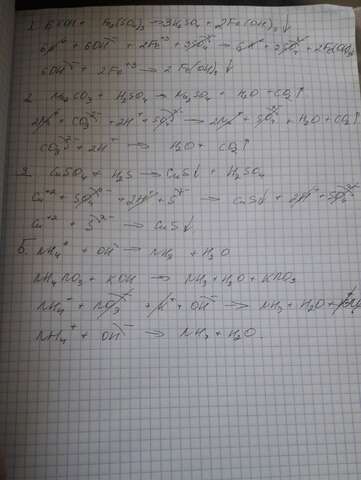 1. 6KOH + Fe₂(SO₄)₃ → 3K₂SO₄ + 2Fe(OH)₃↓
6K⁺ + 6OH⁻ + 2Fe⁺³ + 3SO₄²⁻ → 6K⁺ + 3SO₄²⁻ + 2Fe(OH)₃
6OH⁻ + 2Fe⁺³ → 2Fe(OH)₃↓
2. Na₂CO₃ + H₂SO₄ → Na₂SO₄ + H₂O + CO₂↑
2Na⁺ + CO₃²⁻ + 2H⁺ + SO₄²⁻ → 2Na⁺ + SO₄²⁻ + H₂O + CO₂↑
CO₃²⁻ + 2H⁺ → H₂O + CO₂↑
CuSO₄ + H₂S → CuS↓ + H₂SO₄
Cu⁺² + SO₄²⁻ + 2H⁺ + S²⁻ → CuS↓ + 2H⁺ + SO₄²⁻
Cu⁺² + S²⁻ → CuS↓
Б. NH₄⁺ + OH⁻ → NH₃ + H₂O
NH₄NO₃ + KOH → NH₃ + H₂O + KNO₃
NH₄⁺ + NO₃⁻ + K⁺ + OH⁻ → NH₃ + H₂O +
NH₄⁺ + OH⁻ → NH₃ + H₂O.